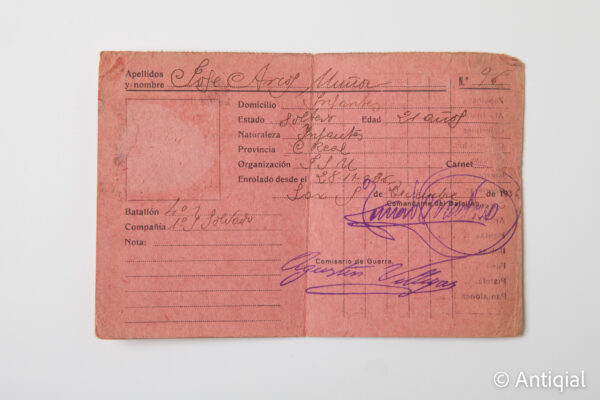 Apellidos
y nombre Jose Arcos Muñoz N.º 96
Domicilio Infantes
Estado soltero Edad 21 años
Naturaleza Infantes
Provincia C. Real
Organización J S U Carnet
Enrolado desde el 28-11-936
de Diciembre de 193
Batallón 4º
Compañía 1ª Soldado
Comandante del Batallón,
Nota:
Comisario de Guerra,
Agustin Villegas
© Antiqial